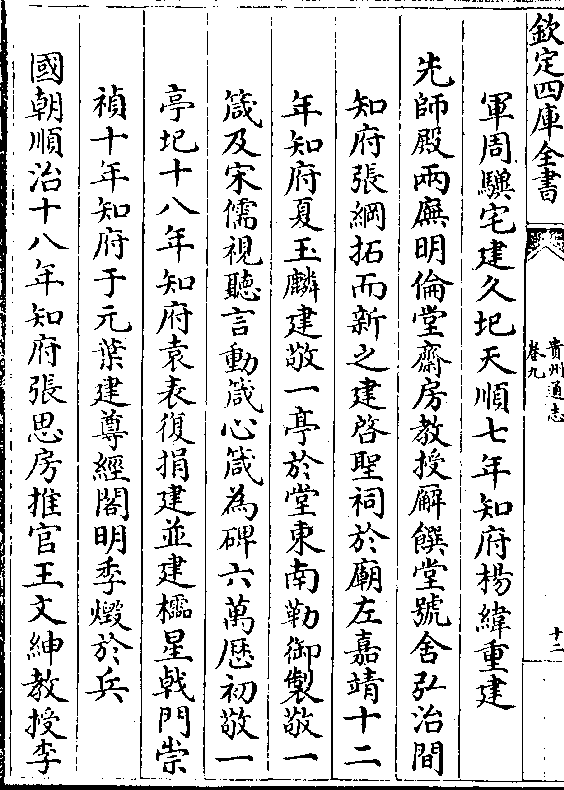 欽定四庫全書
貴州通志
卷九
十二
軍周驥宅建久圮天順七年知府楊緯重建
先師殿兩廡明倫堂齋房教授廨饌堂號舍弘治間
知府張綱拓而新之建啓聖祠於廟左嘉靖十二
年知府夏玉麟建敬一亭於堂東南勒御製敬一
箴及宋儒視聽言動箴心箴為碑六萬厯初敬一
亭圮十八年知府袁表復捐建並建櫺星戟門崇
禎十年知府于元葉建尊經閣明季燬於兵
國朝順治十八年知府張思房推官王文紳教授李